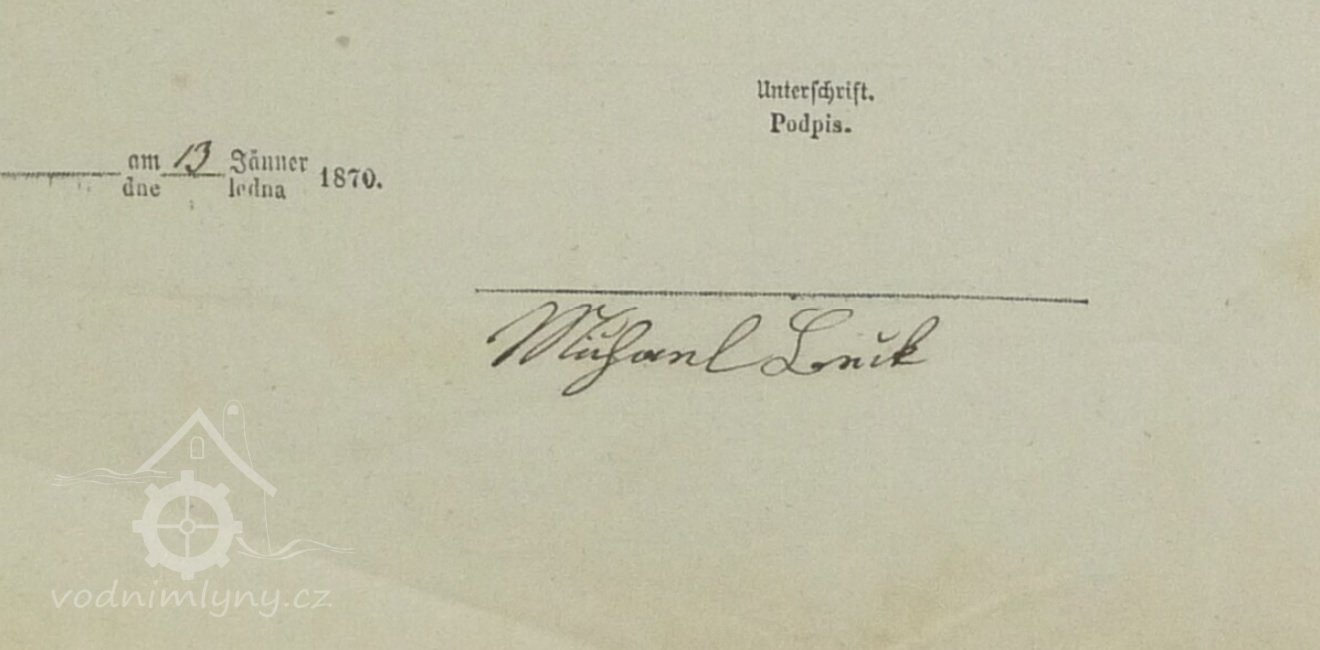 Unterschrift.
Podpis.
am 13 Jänner 1870.
dne ledna
Michael
vodnimlyny.cz